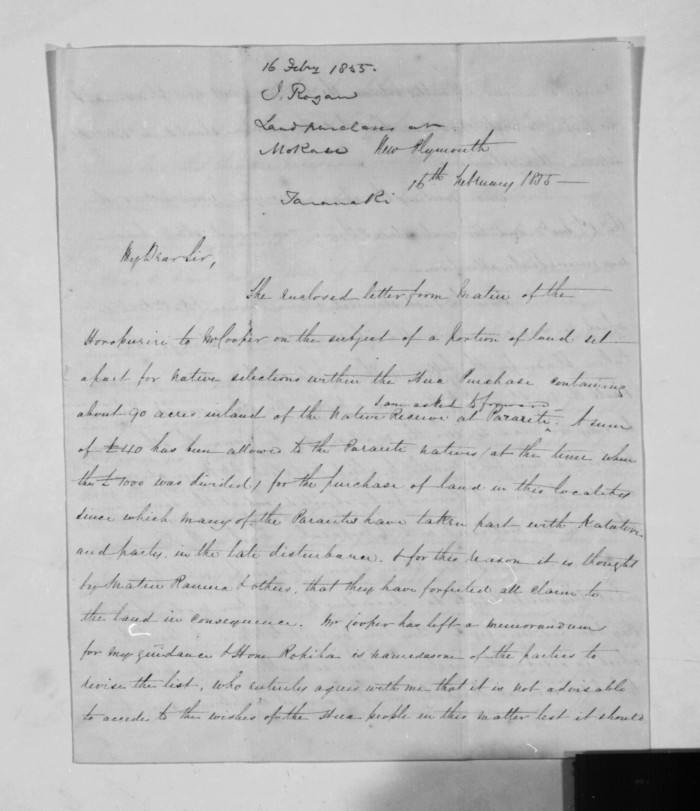 16 Feby 1855.
J. Rogan
Land purchases at
Mokau New Plymouth
16th February 1855 —
Taranaki
My Dear Sir,
The enclosed letter from Matiu of the
to Mr Cooper on the subject of a portion of land set
apart for native selections within the Hua Purchase containing
I am asked to forward
about 90 acres inland of the Native Reserve at Paraiti. ‸ A sum
of £40 has been allowed to the Paraiti natives (at the time when
the £1000 was divided) for the purchase of land in this locality
since which many of the Paraitis have taken part with Katatore
and party in the late disturbance. & for this reason it is thought
by Matiu Raniera & others, that they have forfeited all claim to
the land in consequence. Mr Cooper has left a memorandum
for my guidance & Hone Ropiha is named as one of the parties to
revise the list, who entirely agrees with me that it is not advisable
to accede to the wishes of the Hua people in this matter lest it should